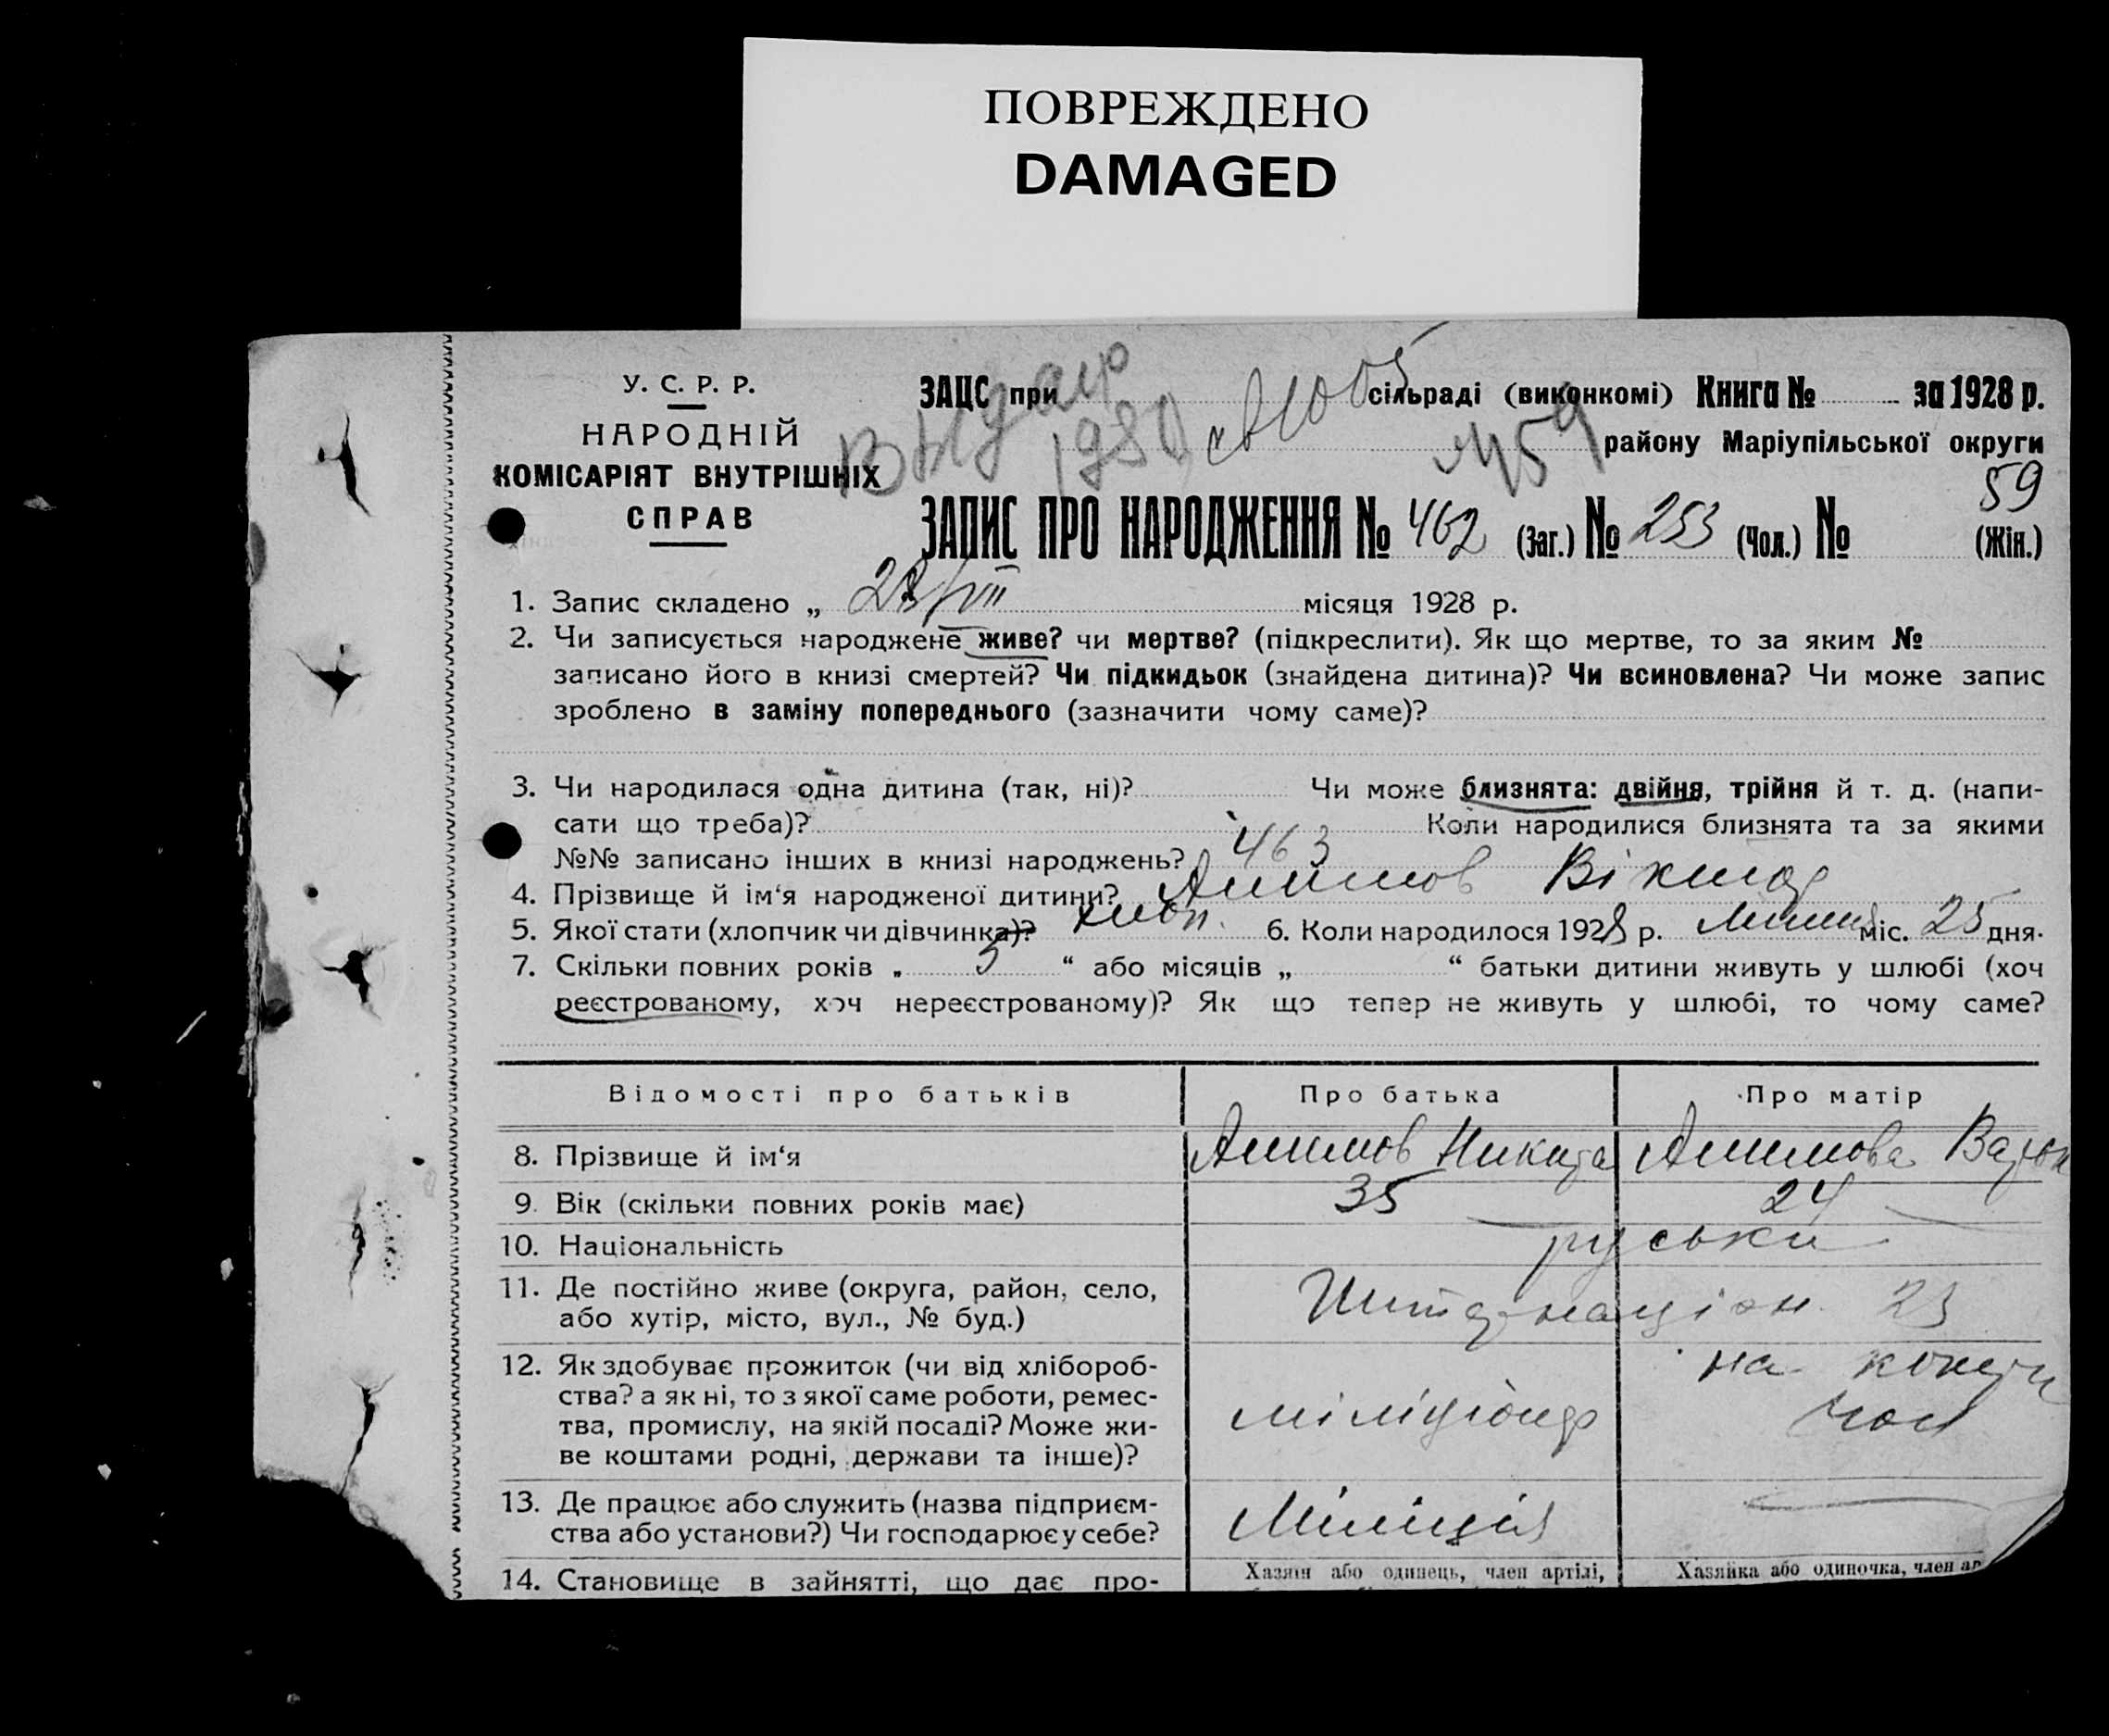 ПОВРЕЖДЕНО
DAMAGED
У. С. Р. Р.
НАРОДНІЙ
КОМІСАРІЯТ ВНУТРІШНІХ
СПРАВ
ЗАЦС при сільраді (виконкомі) Книга № за 1928 р.
району Маріупільської округи
59
ЗАПИС ПРО НАРОДЖЕННЯ № 462 (Заг.) № 253 (Чол.) № (Жін.)
1. Запис складено „ /VIII місяця 1928 р.
2. Чи записується народжене живе? чи мертве? (підкреслити). Як що мертве, то за яким №
записано його в книзі смертей? Чи підкидьок (знайдена дитина)? Чи всиновлена? Чи може запис
зроблено в заміну попереднього (зазначити чому саме)?
3. Чи народилася одна дитина (так, ні)? Чи може близнята: двійня, трійня й т. д. (напи-
сати що треба)? Коли народилися близнята та за якими
№№ записано інших в книзі народжень? 463
4. Прізвище й ім‘я народженої дитини? Віктор
5. Якої стати (хлопчик чи дівчинка)? хлоп. 6. Коли народилося 1928 р. Липня міс. 25 дня.
7. Скільки повних років „ 5 “ або місяців „ “ батьки дитини живуть у шлюбі (хоч
реєстрованому, хоч нереєстрованому)? Як що тепер не живуть у шлюбі, то чому саме?
Відомості про батьків Про батька Про матір
8. Прізвище й ім‘я Никита
9. Вік (скільки повних років має) 35 24
10. Національність руські
11. Де постійно живе (округа, район, село,
або хутір, місто, вул., № буд.) Интернаціон. 23
12. Як здобуває прожиток (чи від хлібороб-
ства? а як ні, то з якої саме роботи, ремес-
тва, промислу, на якій посаді? Може жи-
ве коштами родні, держави та інше)? міліціонер на
13. Де працює або служить (назва підприєм-
ства або установи?) Чи господарює у себе? Міліція
14. Становище в зайнятті, що дає про- Хазяїн або одинець, член артілі, Хазяйка або одиночка, член ар